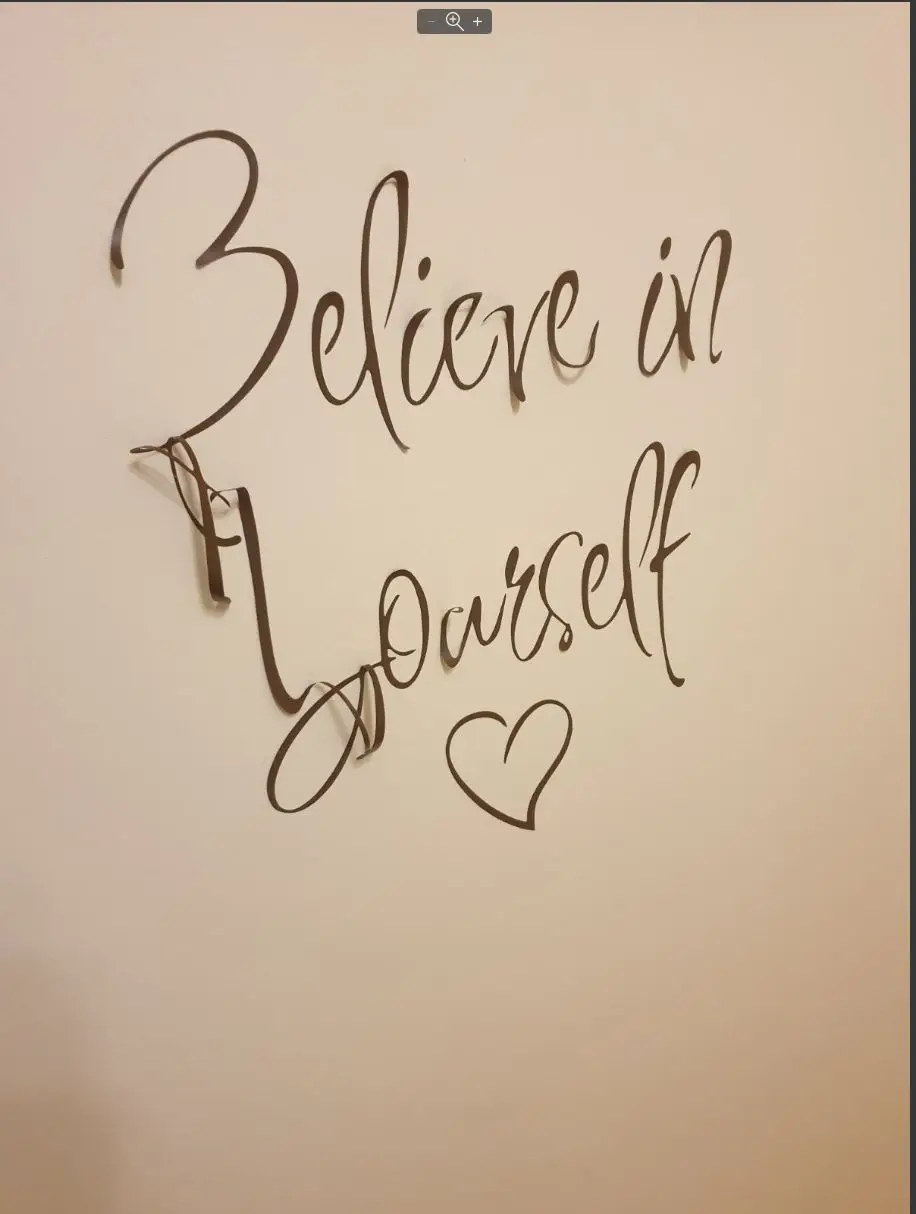 Believe in
Yourself